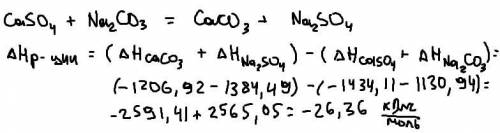 CaSO4 + Na2CO3 = CaCO3 + Na2SO4
ΔHр-ции = (ΔHCaCO3 + ΔHNa2SO4) - (ΔHCaSO4 + ΔHNa2CO3) =
(-1206,92 - 1384,49) - (-1434,11 - 1130,94) =
-2591,41 + 2565,05 = -26,36 кДж/моль